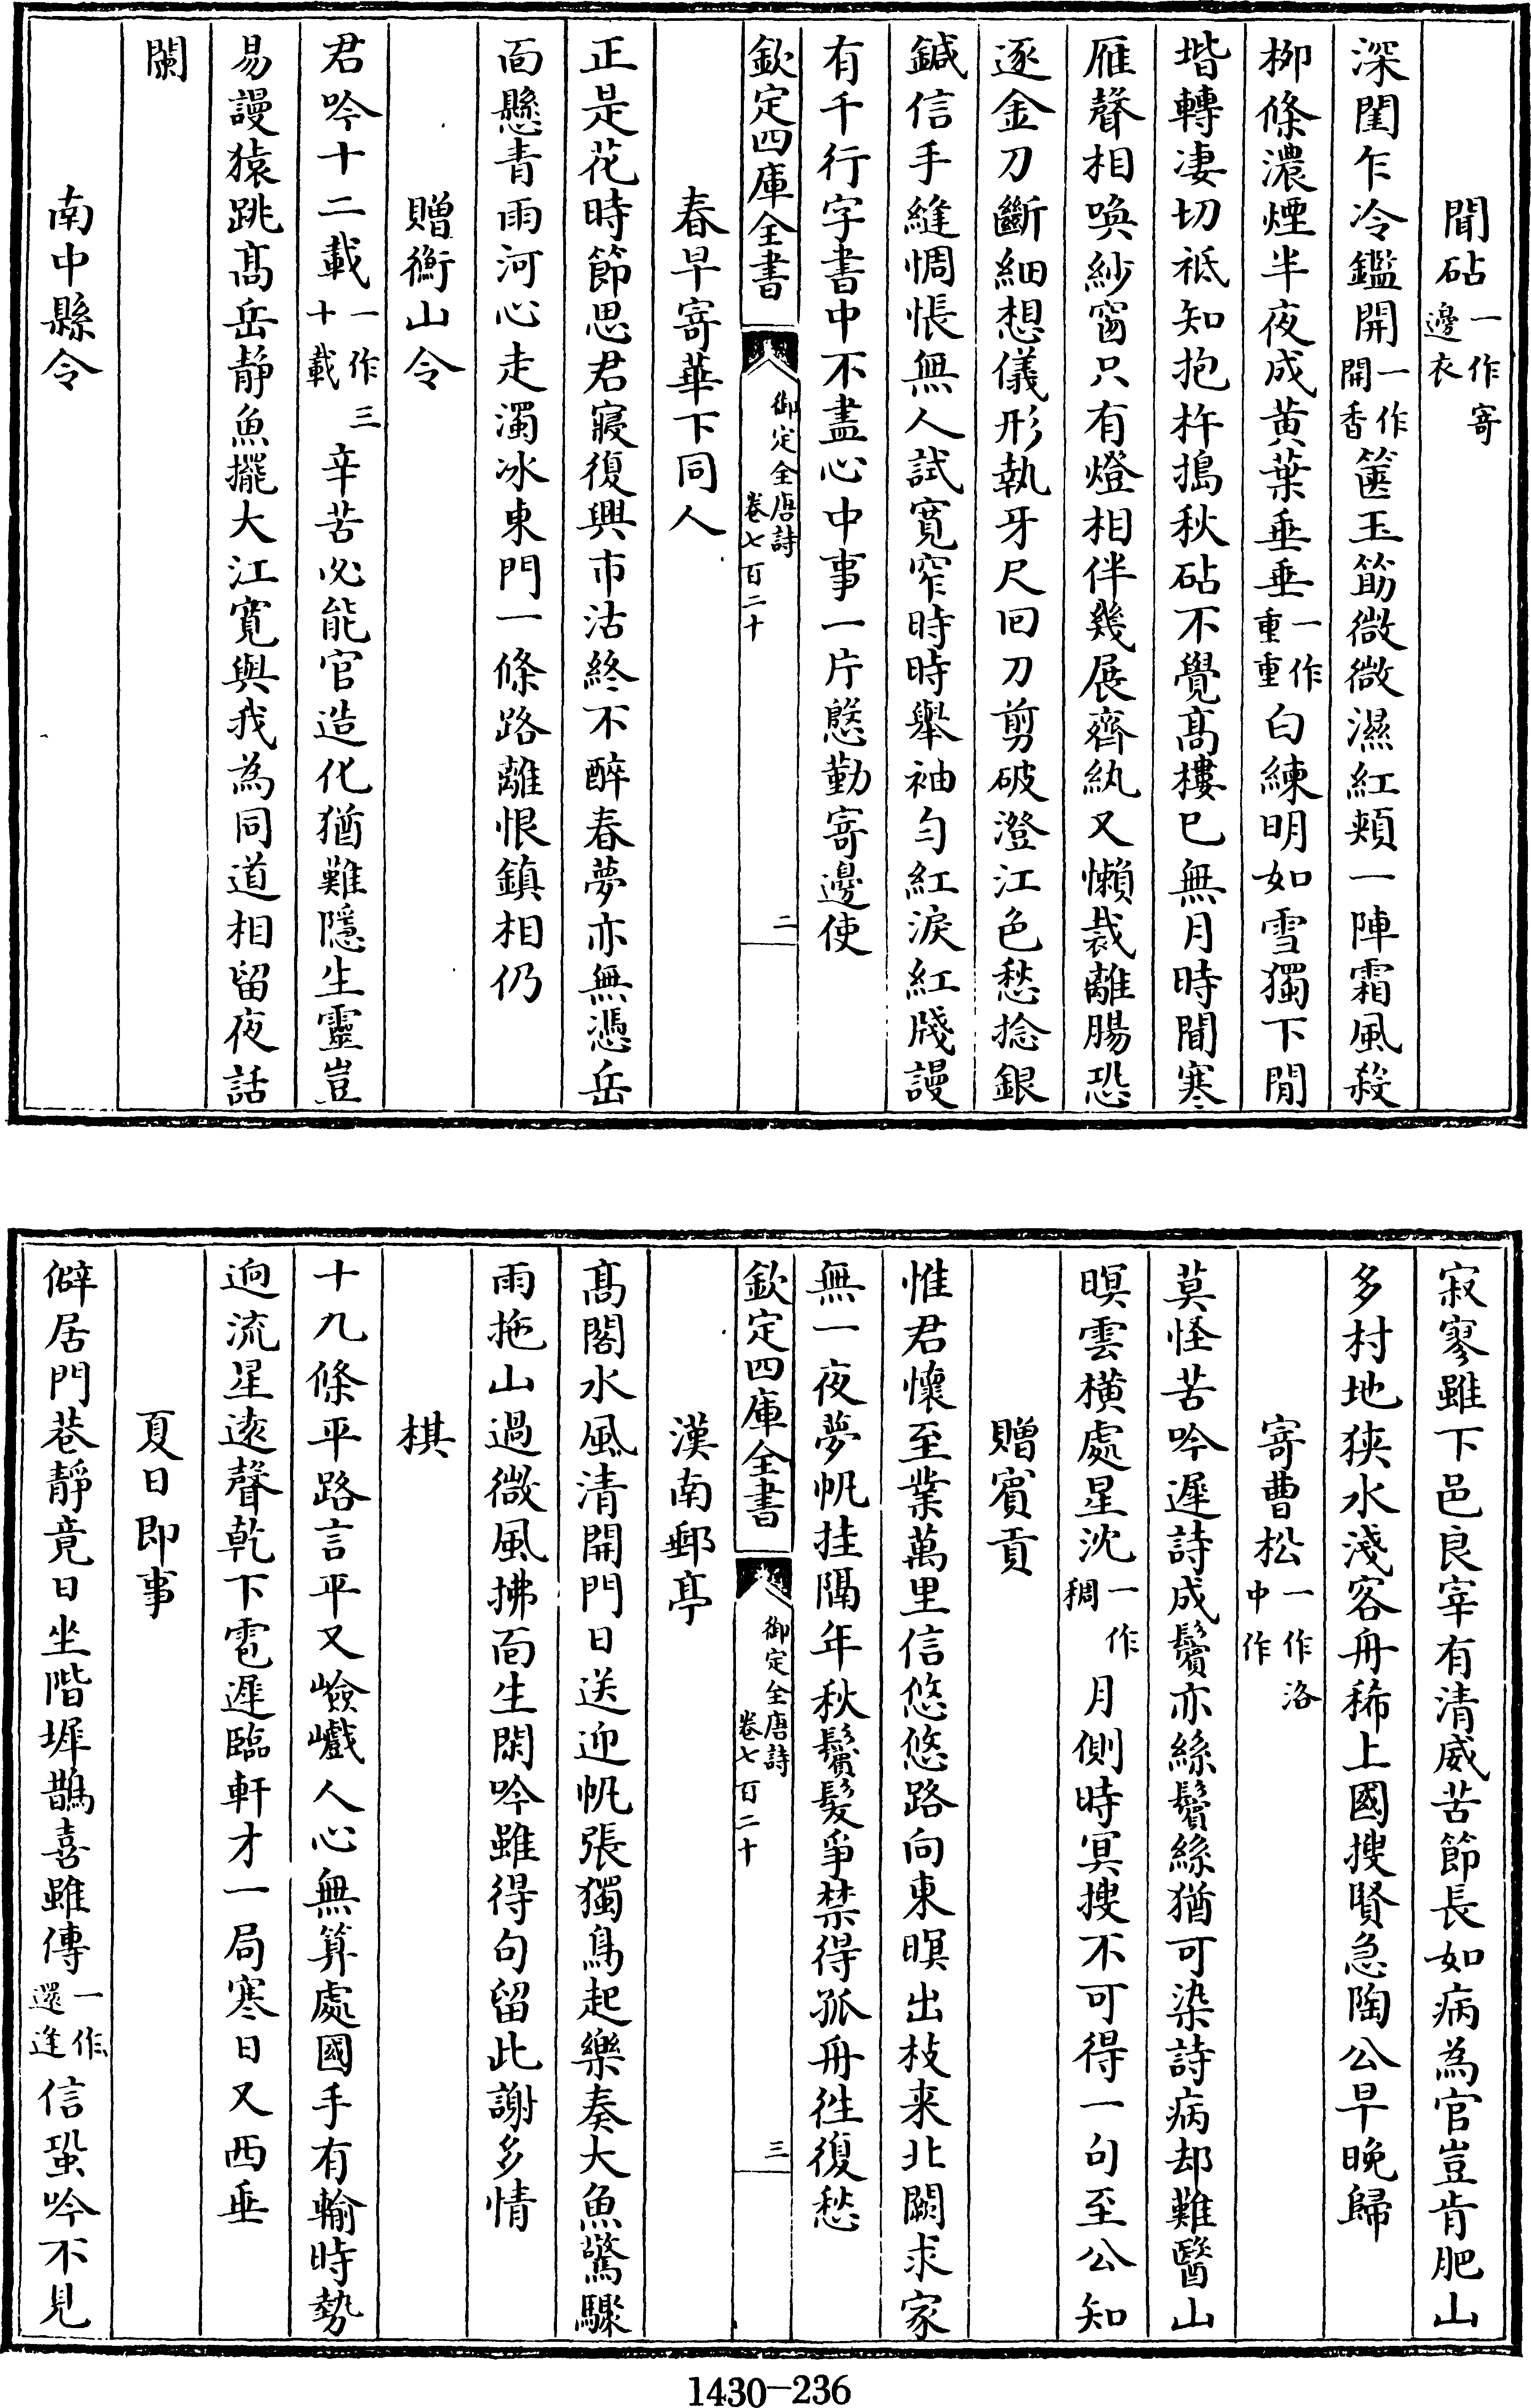 聞砧一作寄邊衣
深閨乍冷鑑開一作開香篋玉筯微微濕紅頰一陣霜風殺
柳條濃煙半夜成黄葉垂垂一作重重白練明如雪獨下閒
堦轉凄切祗知抱杵搗秋砧不覺髙樓已無月時聞寒
雁聲相喚紗窗只有燈相伴幾展齊紈又懶裁離腸恐
逐金刀斷細想儀形執牙尺回刀剪破澄江色愁捻銀
鍼信手縫惆悵無人試寛窄時時舉袖匀紅淚紅牋謾
有千行字書中不盡心中事一片慇勤寄邊使
欽定四庫全書 御定全唐詩 卷七百二十 二
春早寄華下同人
正是花時節思君寢復興市沽終不醉春夢亦無憑岳
面懸青雨河心走濁冰東門一條路離恨鎮相仍
贈衡山令
君吟十二載一作三十載辛苦必能官造化猶難隱生靈豈
易謾猿跳髙岳静魚擺大江寛與我為同道相留夜話
闌
南中縣令
寂寥雖下邑良宰有清威苦節長如病為官豈肯肥山
多村地狹水淺客舟稀上國搜賢急陶公早晚歸
寄曹松一作洛中作
莫怪苦吟遲詩成鬢亦絲鬢絲猶可染詩病却難醫山
暝雲橫處星沈一作稠月側時冥搜不可得一句至公知
贈賓貢
惟君懷至業萬里信悠悠路向東暝出枝来北闕求家
無一夜夢帆挂隔年秋鬢髮爭禁得孤舟往復愁
欽定四庫全書 御定全唐詩 卷七百二十 三
漢南郵亭
髙閣水風清開門日送迎帆張獨鳥起樂奏大魚驚驟
雨拖山過微風拂面生閑吟雖得句留此謝多情
棋
十九條平路言平又嶮巇人心無算處國手有輸時勢
逈流星逺聲乾下雹遲臨軒才一局寒日又西垂
夏日即事
僻居門巷靜竟日坐階墀鵲喜雖傳一作還逢信蛩吟不見
1430-236